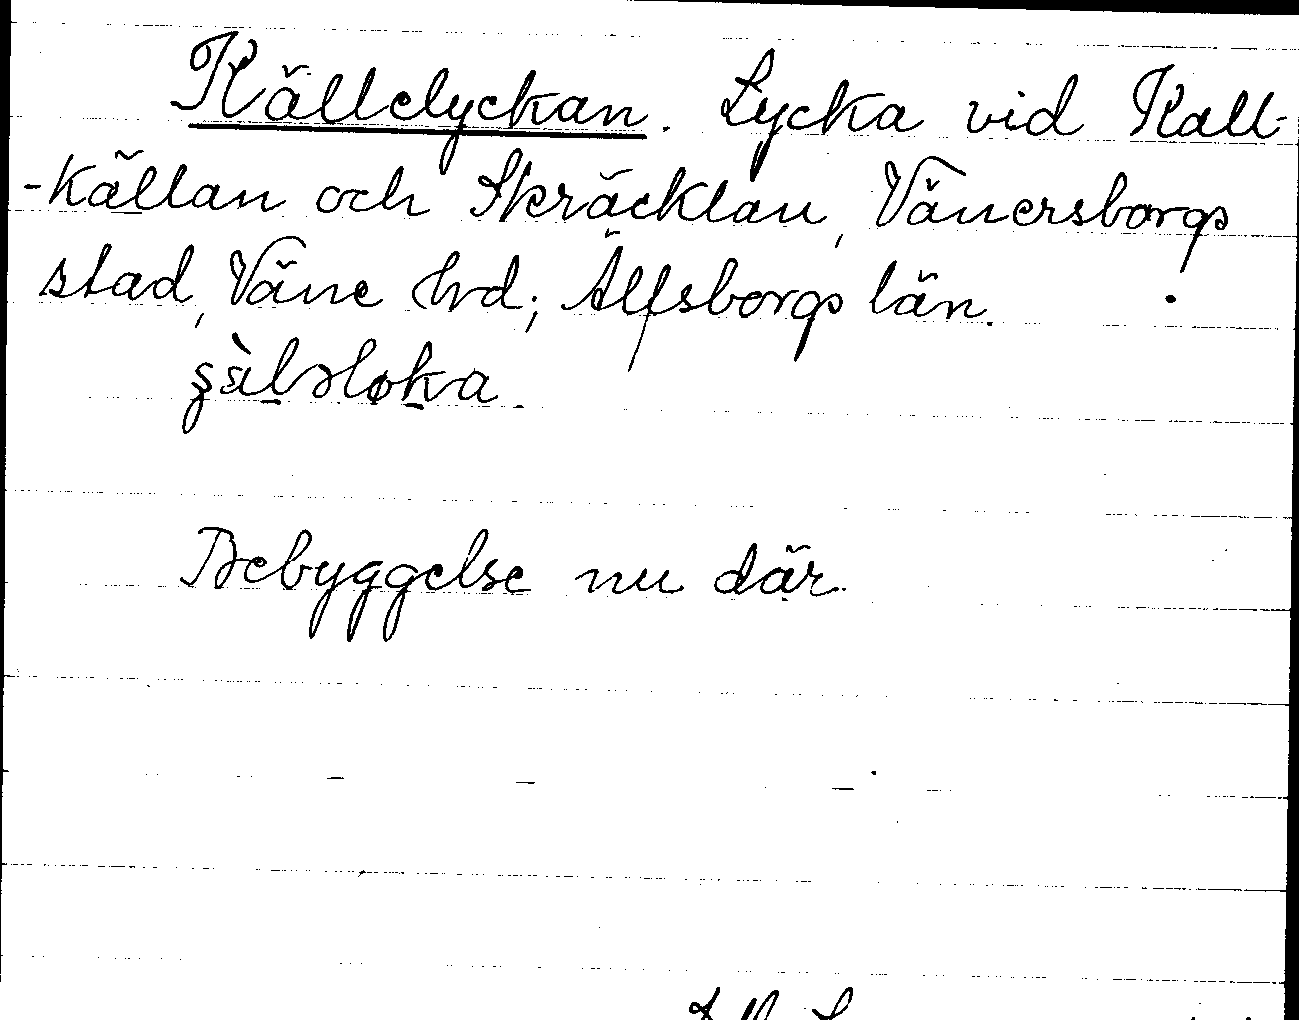 Källelyckan. Lycka vid Kall-
-källan och Skräcklan, Vänersborgs
stad, Väne hd; Älfsborgs län.
Bebyggelse nu där.